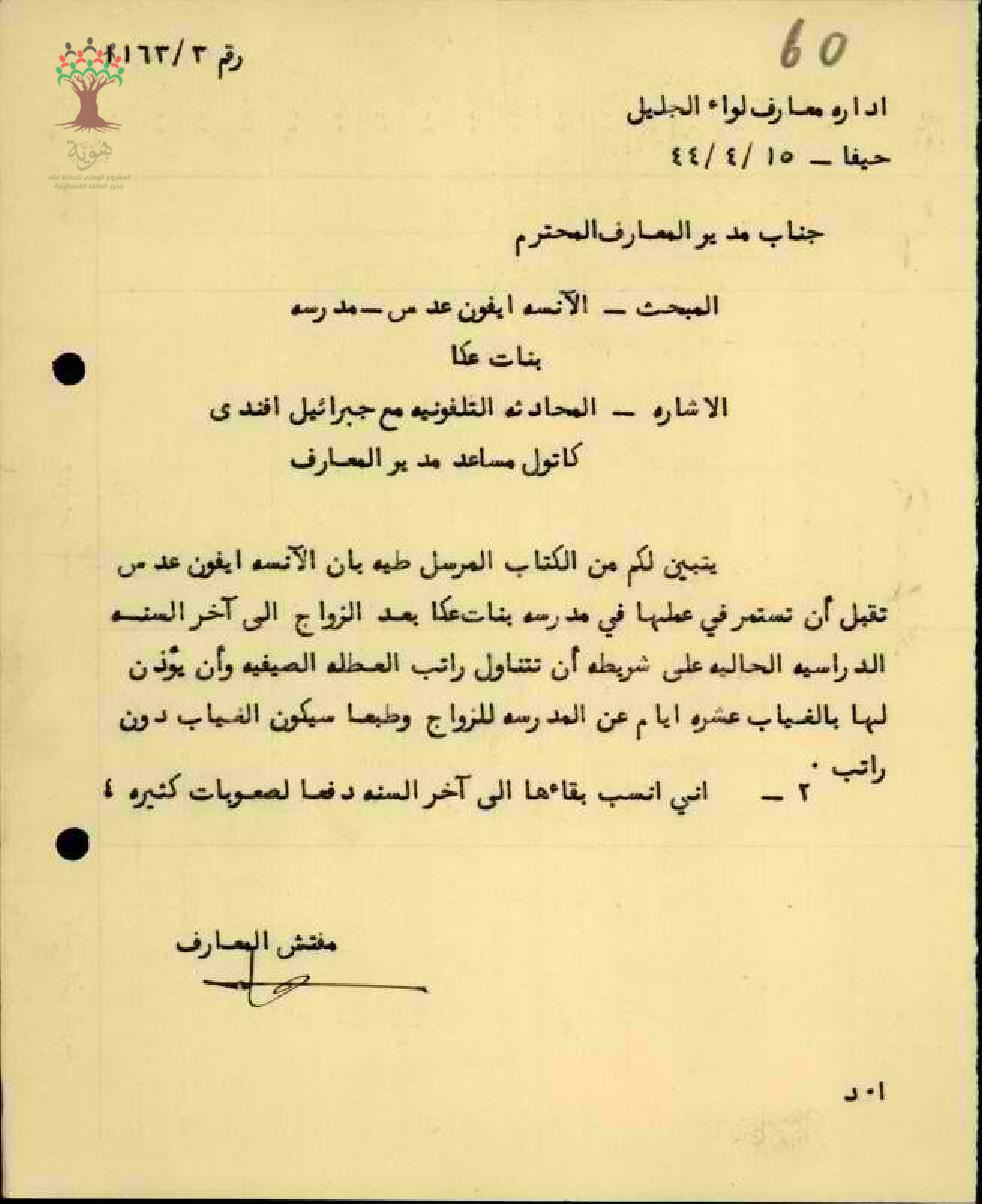 60
رقم ٣/١٦٣
هوية
المشروع الوطني للحفاظ على
جذور العائلة الفلسطينية
اداره معارف لواء الجليل
حيفا ــ ١٥ /٤ /٤٤
جناب مدير المعارف المحترم
المبحث ــ الآنسه ايفون عدس ــ مدرسه
بنات عكا
الاشاره ــ المحادثه التلفونيه مع جبرائيل افندى
كاتول مساعد مدير المعارف
يتبين لكم من الكتاب المرسل طيه بان الآنسه ايفون عدس
تقبل أن تستمر في عملها في مدرسه بنات عكا بعد الزواج الى آخر السنه
الدراسيه الحاليه على شريطه أن تتناول راتب العطله الصيفيه وأن يؤذن
لها بالغياب عشره ايام عن المدرسه للزواج وطبعا سيكون الغياب دون
راتب ٠
٢ ــ اني انسب بقاءها الى آخر السنه دفعا لصعوبات كثيره ٤
مفتش المعارف
ا٠د